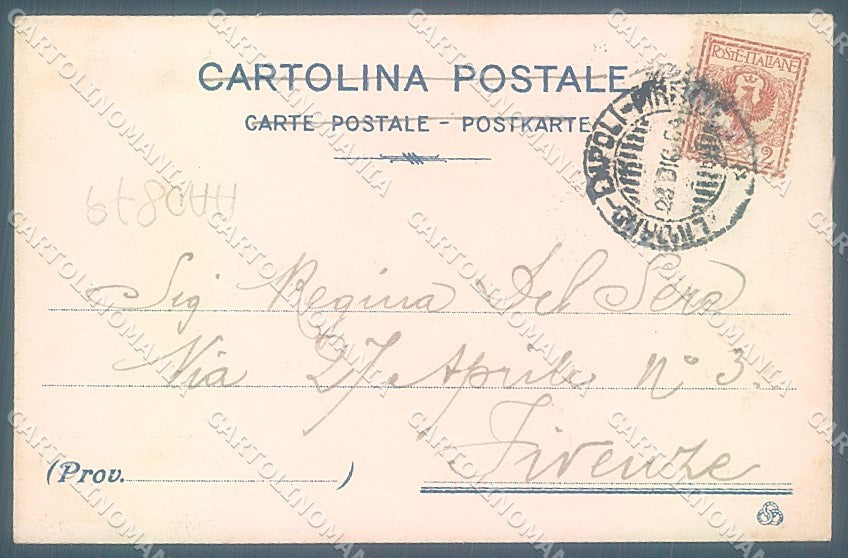 CARTOLINA POSTALE
CARTE POSTALE - POSTKARTE
POSTE·ITALIANE
2
EMPOLI-PIR
AAC879
Sig Regina Del Sera
Via 27 Aprile N° 3.
Firenze
(Prov. )
CARTOLINOMANIA